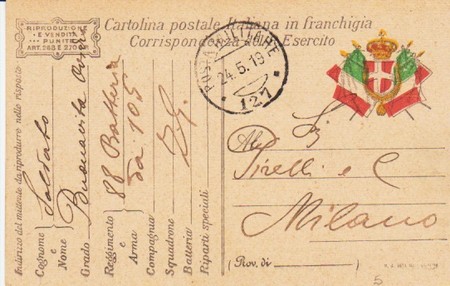 RIPRODUZIONE
E VENDITA
PUNITE
ART. 285 E 220
Cartolina postale Italiana in franchigia
Corrispondenza del R. Esercito
POSTA MILITARE
24.5.19
127
Indirizzo del mittente da riprodurre nello risposte
Cognome e Nome
Soldato
Buonavita
Grado
Reggimento e Arma
88 Batteria
da 105
Compagnia
Squadrone
Batteria
Riparti speciali
Pirelli e C
Milano
(Prov. di
5